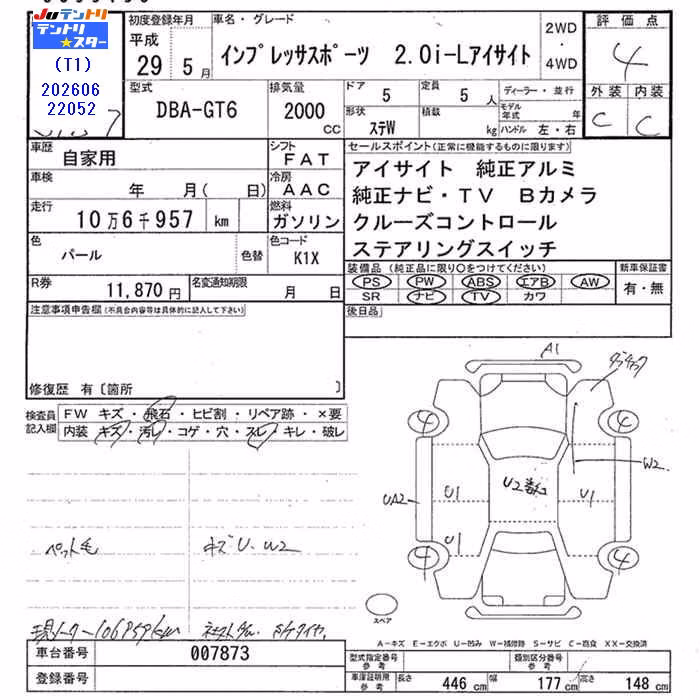 Juテントリ
テントリ★スター
(T1)
202606
22052
初度登録年月
平成
29 5月
車名・グレード
インプレッサスポーツ 2.0i-Lアイサイト
2WD
・
4WD
評価点
4
外装 内装
C C
型式
DBA-GT6
排気量
2000
CC
ドア
5
定員
5人
形状
ステW
積載
kg
ディーラー・並行
モデル年式 年
ハンドル 左・右
車歴
自家用
シフト
FAT
車検
年 月(日)
冷房
AAC
走行
10万6千957 km
燃料
ガソリン
色
パール
色替
色コード
K1X
R券
11,870円
名変通知期限
月 日
セールスポイント(正常に機能するものに限ります)
アイサイト 純正アルミ
純正ナビ・TV Bカメラ
クルーズコントロール
ステアリングスイッチ
装備品(純正品に限り○をつけてください)
PS PW ABS エアB AW
SR ナビ TV カワ
新車保証書
有・無
後日品
注意事項申告欄(不具合内容等は具体的に記入して下さい)
修復歴 有〔箇所 〕
検査員記入欄
FW キズ・飛石・ヒビ割・リペア跡・×要
内装 キズ・汚レ・コゲ・穴・スレ・キレ・破レ
ペット毛
キズ U・W2
A1
4 4
W2
U2
UA2
U1
U1
U1
4 4
スペア
A-キズ E-エクボ U-凹み W-補修跡 S-サビ C-腐食 XX-交換済
車台番号
007873
登録番号
型式指定番号
参考
類別区分番号
参考
車庫証明用
参考
長さ 446cm 幅 177cm 高さ 148cm